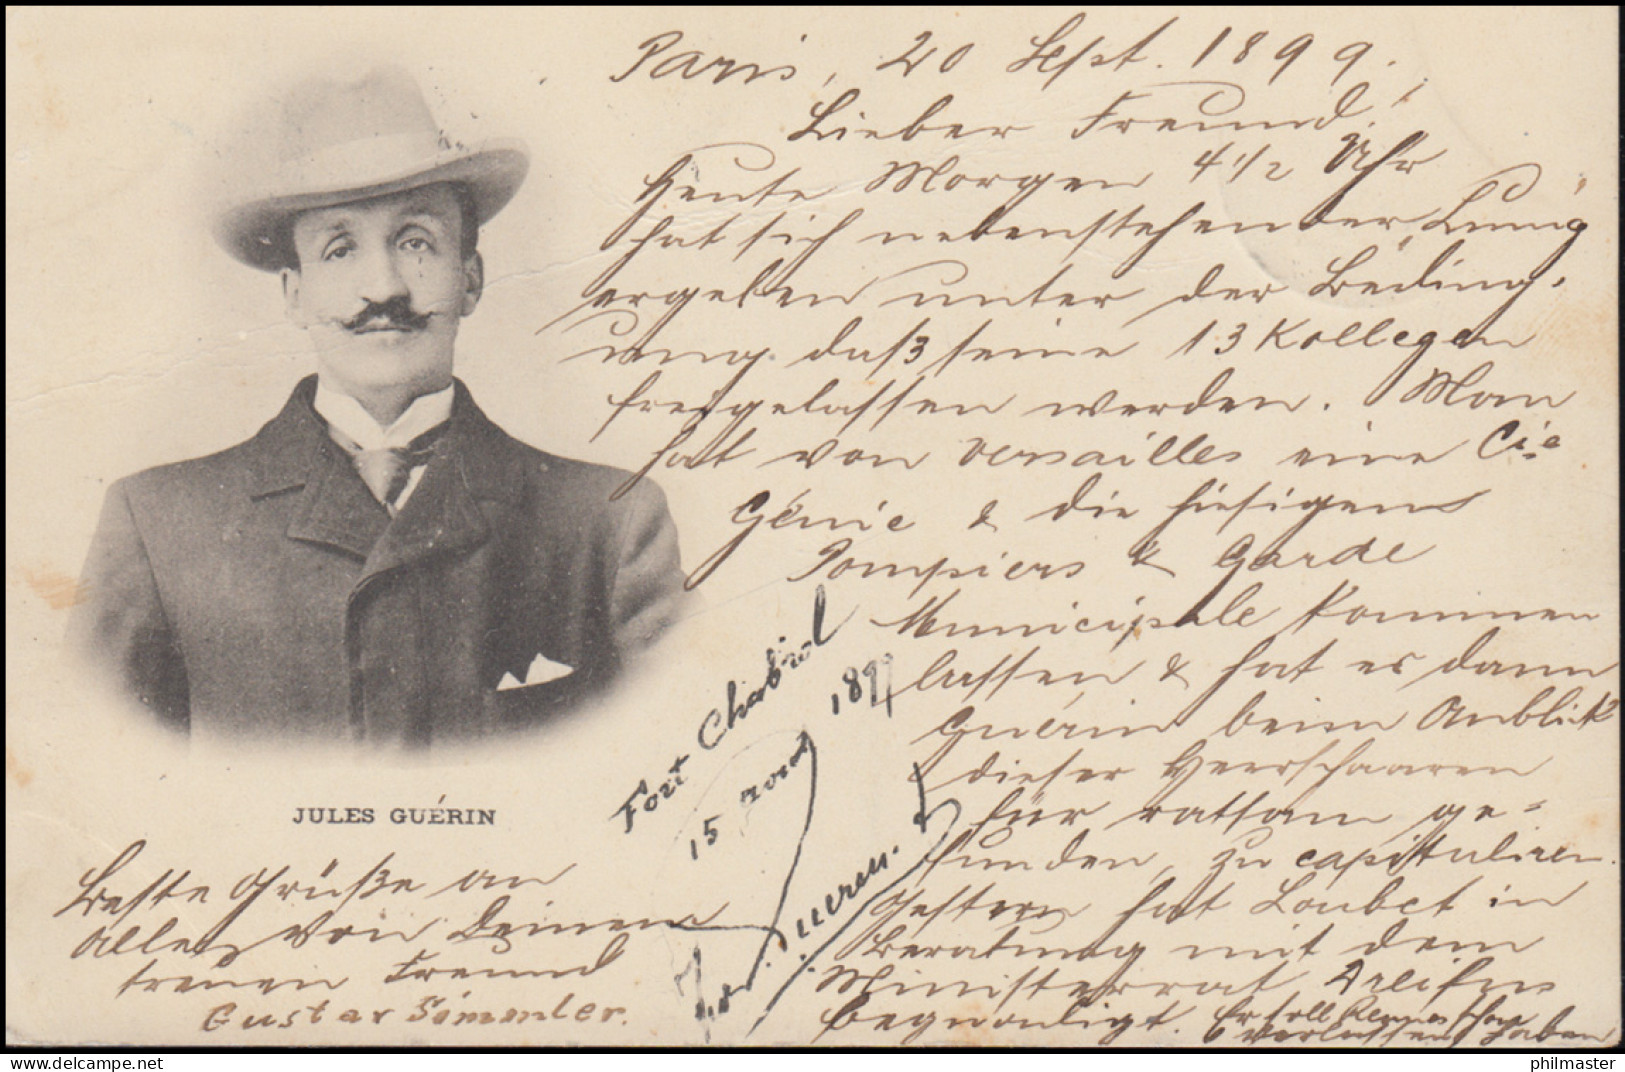 Paris, 20 Sept. 1899.
Lieber Freund!
Heute Morgen 4 1/2 Uhr
hat sich nebenstehender
ergeben unter der Beding-
ung daß seine 13 Kollegen
freigelassen werden. Man
hat von Versailles eine Cie
Génie & die hiesigen
Pompiers & Garde
Municipale kommen
lassen & hat es dann
Guérin beim Anblick
dieser Heerschaaren
für ratsam ge-
funden, zu capituliren.
Gestern hat Loubet in
Beratung mit dem
Ministerrat Dreifus
begnadigt. Er soll Rennes schon
verlassen haben
Fort Chabrol
15 août 1899
Jules Guérin
JULES GUÉRIN
Beste Grüße an
Alle von Deinem
treuen Freund
Gustav Semmler.
philmaster